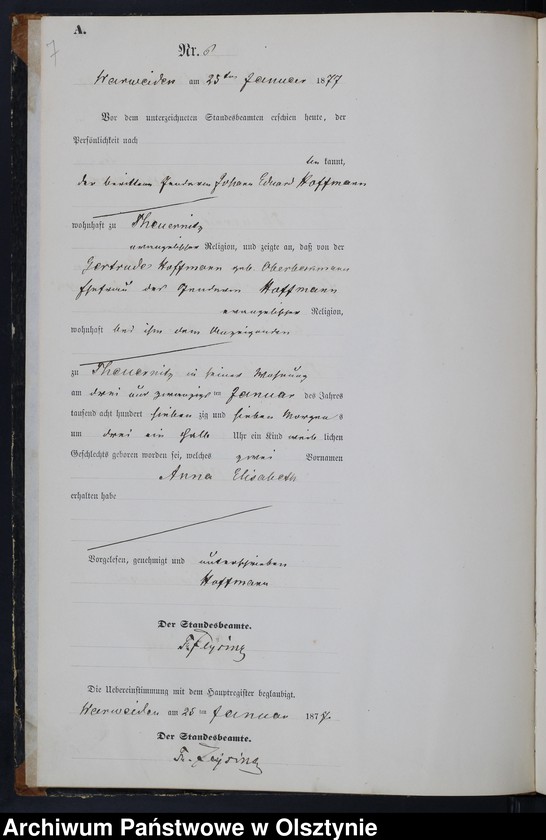 A.
7
Nr. 6
Warweiden am 25ten Januar 1877
Vor dem unterzeichneten Standesbeamten erschien heute, der
Persönlichkeit nach
be kannt,
der berittene Gendarm Johann Eduard Hoffmann
wohnhaft zu Theuernitz
evangelischer Religion, und zeigte an, daß von der
Gertrude Hoffmann geb. Oberbesmann
Ehefrau des Gendarm Hoffmann
evangelischer Religion,
wohnhaft bei ihm dem Anzeigenden
zu Theuernitz in seiner Wohnung
am drei und zwanzigsten Januar des Jahres
tausend acht hundert sieben zig und sieben Morgens
um drei ein halb Uhr ein Kind weib lichen
Geschlechts geboren worden sei, welches zwei Vornamen
Anna Elisabeth
erhalten habe
Vorgelesen, genehmigt und unterschrieben
Hoffmann
Der Standesbeamte.
Die Uebereinstimmung mit dem Hauptregister beglaubigt.
Warweiden am 25ten Januar 1877.
Der Standesbeamte.
Archiwum Państwowe w Olsztynie